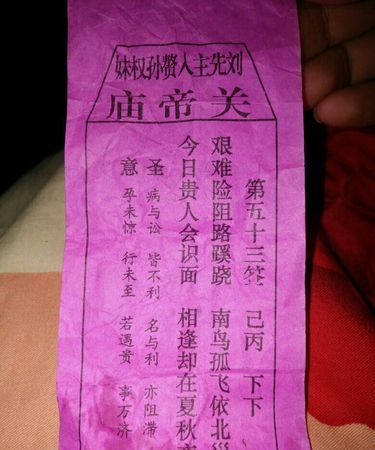 刘先主入赘孙权妹
关帝庙
第五十三签 己丙 下下
艰难险阻路蹊跷 南鸟孤飞依北
今日贵人会识面 相逢却在夏秋
圣 病与讼 皆不利 名与利 亦阻滞
意 孕未惊 行未至 若遇贵 事万济